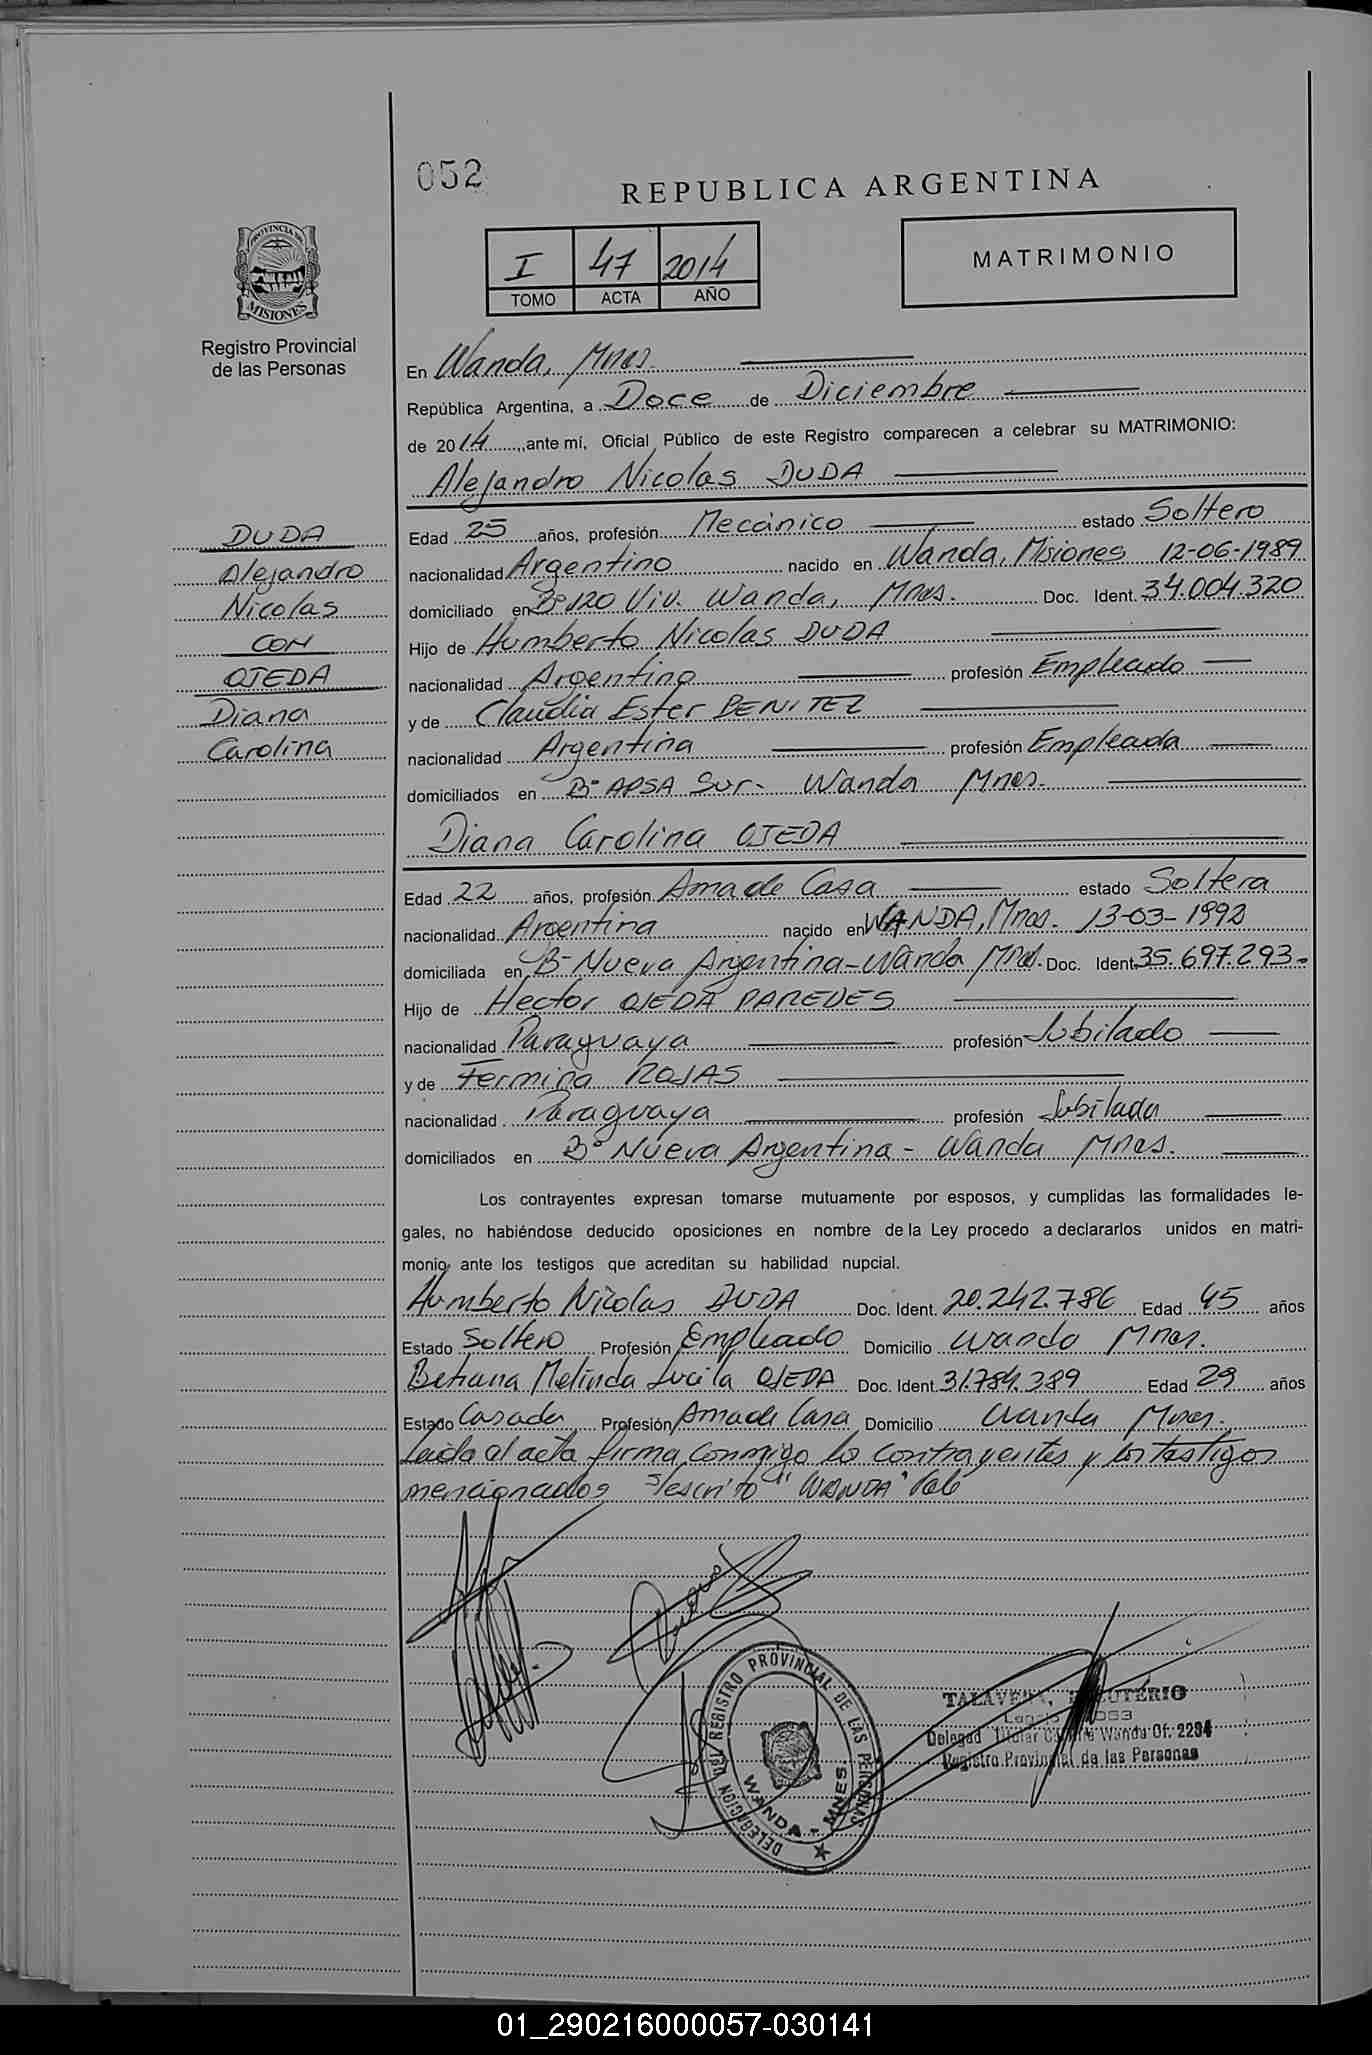 052
REPUBLICA ARGENTINA
I 47 2014
TOMO ACTA AÑO
MATRIMONIO
PROVINCIA DE
MISIONES
Registro Provincial
de las Personas
En Wanda, Mnes.
República Argentina, a Doce de Diciembre
de 2014, ante mí, Oficial Público de este Registro comparecen a celebrar su MATRIMONIO:
Alejandro Nicolas DUDA
DUDA
Alejandro
Nicolas
CON
OJEDA
Diana
Carolina
Edad 25 años, profesión Mecánico estado Soltero
nacionalidad Argentino nacido en Wanda, Misiones 12-06-1989
domiciliado en B° 120 Viv. Wanda, Mnes. Doc. Ident. 34.004.320
Hijo de Humberto Nicolas DUDA
nacionalidad Argentino profesión Empleado
y de Claudia Ester BENITEZ
nacionalidad Argentina profesión Empleada
domiciliados en B° APSA Sur. Wanda Mnes.
Diana Carolina OJEDA
Edad 22 años, profesión Ama de Casa estado Soltera
nacionalidad Argentina nacido en WANDA, Mnes. 13-03-1992
domiciliada en B° Nueva Argentina - Wanda Mnes. Doc. Ident. 35.697.293-
Hijo de Hector OJEDA PAREDES
nacionalidad Paraguaya profesión Jubilado
y de Fermina ROJAS
nacionalidad Paraguaya profesión Jubilada
domiciliados en B° Nueva Argentina - Wanda Mnes.
Los contrayentes expresan tomarse mutuamente por esposos, y cumplidas las formalidades le-
gales, no habiéndose deducido oposiciones en nombre de la Ley procedo a declararlos unidos en matri-
monio, ante los testigos que acreditan su habilidad nupcial.
Humberto Nicolas DUDA Doc. Ident. 20.242.786 Edad 45 años
Estado Soltero Profesión Empleado Domicilio Wanda Mnes.
Betiana Melinda Lucila OJEDA Doc. Ident. 31.784.389 Edad 29 años
Estado Casada Profesión Ama de Casa Domicilio Wanda Mnes.
Leida el acta firma conmigo los contrayentes y los testigos
mencionados s/escrito "WANDA" Vale
DELEGACION REGISTRO PROVINCIAL DE LAS PERSONAS
WANDA - MNES
TALAVERA, ELEUTERIO
Titular Wanda Of. 2294
Registro Provincial de las Personas
01_290216000057-030141